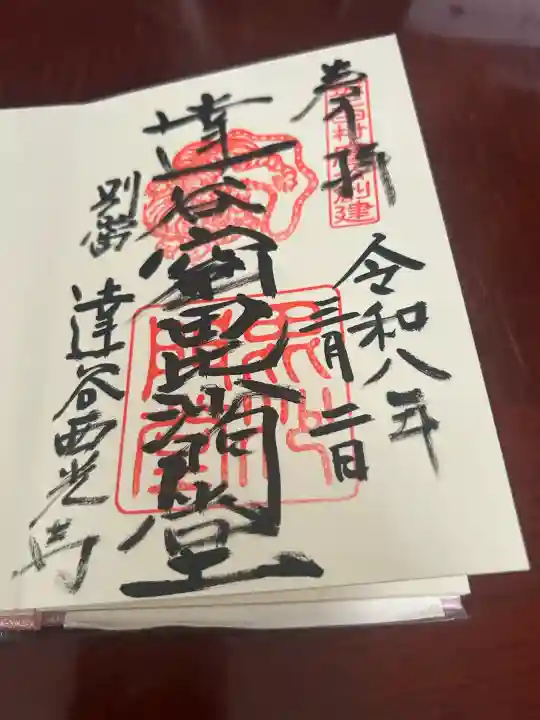 奉拝
令和八年
三月二日
達谷窟毘沙門堂
別當
達谷西光寺